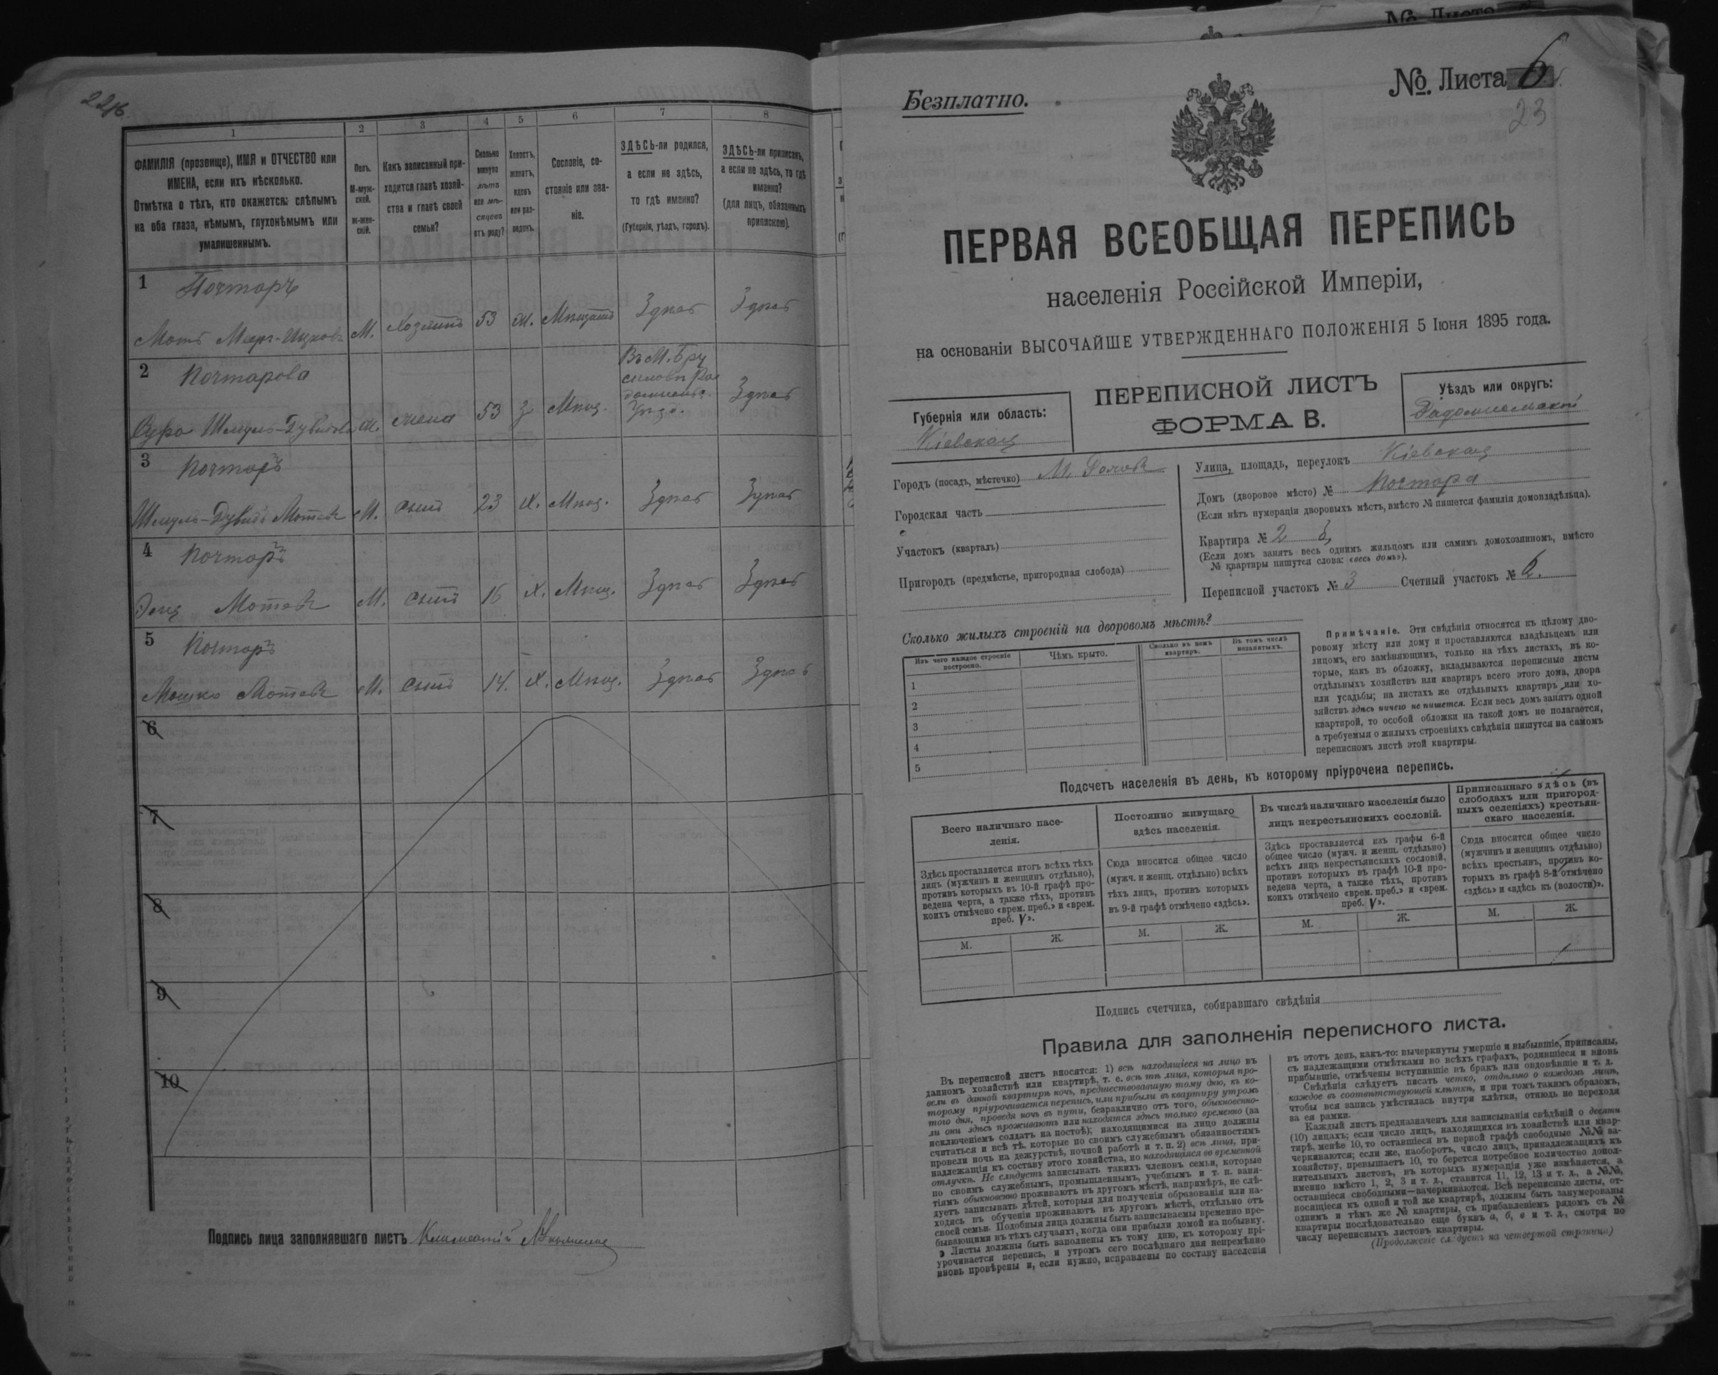 1
2
3
4
5
6
7
8
ФАМИЛІЯ (прозвище), ИМЯ и ОТЧЕСТВО или
ИМЕНА, если ихъ нѣсколько.
Отмѣтка о тѣхъ, кто окажется: слѣпымъ
на оба глаза, нѣмымъ, глухонѣмымъ или
умалишеннымъ.
Полъ.
М-муж-
ской.
ж-жен-
скій.
Какъ записанный при-
ходится главѣ хозяй-
ства и главѣ своей
семьи?
Сколько
минуло
лѣтъ
или мѣ-
сяцевъ
отъ роду?
Холостъ,
женатъ,
вдовъ
или раз-
веденъ.
Сословіе, со-
стояніе или зва-
ніе.
ЗДѢСЬ-ли родился,
а если не здѣсь,
то гдѣ именно?
(Губернія, уѣздъ, городъ).
ЗДѢСЬ-ли приписанъ,
а если не здѣсь, то гдѣ
именно?
(для лицъ, обязанныхъ
припискою).
1
Почтаръ
М. 53
2
Почтарова
жена 53 Мѣщ.
3
Почтаръ
М. сынъ 23 Х. Мѣщ.
4
Почтаръ
М. сынъ 16 Х. Мѣщ.
5
Почтаръ
Мошко М. сынъ 14. Х. Мѣщ.
6
7
8
9
10
Подпись лица заполнявшаго листъ
Безплатно.
№ Листа 6
23
ПЕРВАЯ ВСЕОБЩАЯ ПЕРЕПИСЬ
населенія Россійской Имперіи,
на основаніи ВЫСОЧАЙШЕ УТВЕРЖДЕННАГО ПОЛОЖЕНІЯ 5 Іюня 1895 года.
Губернія или область:
Кіевская
ПЕРЕПИСНОЙ ЛИСТЪ
ФОРМА В.
Уѣздъ или округъ:
Радомысльскій
Городъ (посадъ, мѣстечко)
Городская часть
Участокъ (кварталъ)
Пригородъ (предмѣстье, пригородная слобода)
Улица, площадь, переулокъ Кіевская
Домъ (дворовое мѣсто) № Почтара
(Если нѣтъ нумераціи дворовыхъ мѣстъ, вмѣсто № пишется фамилія домовладѣльца).
Квартира № 2
(Если домъ занятъ весь однимъ жильцомъ или самимъ домохозяиномъ, вмѣсто
№ квартиры пишутся слова: «весь домъ»).
Переписной участокъ № 3 Счетный участокъ №
Сколько жилыхъ строеній на дворовомъ мѣстѣ?
Изъ чего каждое строеніе
построено.
Чѣмъ крыто.
Сколько въ немъ
квартиръ.
Въ томъ числѣ
незанятыхъ.
1
2
3
4
5
Примѣчаніе. Эти свѣдѣнія относятся къ цѣлому дво-
ровому мѣсту или дому и проставляются владѣльцемъ или
лицомъ, его замѣняющимъ, только на тѣхъ листахъ, въ ко-
торые, какъ въ обложку, вкладываются переписные листы
отдѣльныхъ хозяйствъ или квартиръ всего этого дома, двора
или усадьбы; на листахъ же отдѣльныхъ квартиръ или хо-
зяйствъ здѣсь ничего не пишется. Если весь домъ занятъ одной
квартирой, то особой обложки на такой домъ не полагается,
а требуемыя о жилыхъ строеніяхъ свѣдѣнія пишутся на самомъ
переписномъ листѣ этой квартиры.
Подсчетъ населенія въ день, къ которому пріурочена перепись.
Всего наличнаго насе-
ленія.
Здѣсь проставляется итогъ всѣхъ тѣхъ
лицъ (мужчинъ и женщинъ отдѣльно),
противъ которыхъ въ 10-й графѣ про-
ведена черта, а также тѣхъ, противъ
коихъ отмѣчено «врем. преб.» и «врем.
преб. V».
М. Ж.
Постоянно живущаго
здѣсь населенія.
Сюда вносится общее число
(мужч. и женщ. отдѣльно) всѣхъ
тѣхъ лицъ, противъ которыхъ
въ 9-й графѣ отмѣчено «здѣсь».
М. Ж.
Въ числѣ наличнаго населенія было
лицъ некрестьянскихъ сословій.
Здѣсь проставляется изъ графы 6-й
общее число (мужч. и женщ. отдѣльно)
всѣхъ лицъ некрестьянскихъ сословій,
противъ которыхъ въ графѣ 10-й про-
ведена черта, а также тѣхъ, противъ
коихъ отмѣчено «врем. преб.» и «врем.
преб. V».
М. Ж.
Приписаннаго здѣсь (въ
слободахъ или пригород-
ныхъ селеніяхъ) крестьян-
скаго населенія.
Сюда вносится общее число
(мужчинъ и женщинъ отдѣльно)
всѣхъ крестьянъ, противъ ко-
торыхъ въ графѣ 8-й отмѣчено
«здѣсь» и «здѣсь къ (волости)».
М. Ж.
Подпись счетчика, собиравшаго свѣдѣнія
Правила для заполненія переписного листа.
Въ переписной листъ вносятся: 1) всѣ находящіеся на лицо въ
данномъ хозяйствѣ или квартирѣ, т. е. всѣ тѣ лица, которыя про-
вели въ данной квартирѣ ночь, предшествовавшую тому дню, къ ко-
торому пріурочивается перепись, или прибыли въ квартиру утромъ
того дня, проведя ночь въ пути, безразлично отъ того, обыкновенно-
ли они здѣсь проживаютъ или находятся здѣсь только временно (за
исключеніемъ солдатъ на постоѣ); находящимися на лицо должны
считаться и всѣ тѣ, которые по своимъ служебнымъ обязанностямъ
провели ночь на дежурствѣ, ночной работѣ и т. п. 2) всѣ лица, при-
надлежащія къ составу этого хозяйства, но находящіяся во временной
отлучкѣ. Не слѣдуетъ записывать такихъ членовъ семьи, которые
по своимъ служебнымъ, промышленнымъ, учебнымъ и т. п. заня-
тіямъ обыкновенно проживаютъ въ другомъ мѣстѣ, напримѣръ, не слѣ-
дуетъ записывать дѣтей, которыя для полученія образованія или на-
ходясь въ обученіи проживаютъ въ другомъ мѣстѣ, отдѣльно отъ
своей семьи. Подобныя лица должны быть записываемы временно пре-
бывающими въ тѣхъ случаяхъ, когда они прибыли домой на побывку.
Листы должны быть заполнены къ тому дню, къ которому прі-
урочивается перепись, и утромъ сего послѣдняго дня непремѣнно
вновь провѣрены и, если нужно, исправлены по составу населенія
въ этотъ день, какъ-то: вычеркнуты умершіе и выбывшіе, приписаны,
съ надлежащими отмѣтками во всѣхъ графахъ, родившіеся и вновь
прибывшіе, отмѣчены вступившіе въ бракъ или овдовѣвшіе и т. д.
Свѣдѣнія слѣдуетъ писать четко, отдѣльно о каждомъ лицѣ,
каждое въ соотвѣтствующей клѣткѣ, и при томъ такимъ образомъ,
чтобы вся запись умѣстилась внутри клѣтки, отнюдь не переходя
за ея рамки.
Каждый листъ предназначенъ для записыванія свѣдѣній о десяти
(10) лицахъ; если число лицъ, находящихся въ хозяйствѣ или квар-
тирѣ, менѣе 10, то оставшіеся въ первой графѣ свободные №№ за-
черкиваются; если же, наоборотъ, число лицъ, принадлежащихъ къ
хозяйству, превышаетъ 10, то берется потребное количество допол-
нительныхъ листовъ, въ которыхъ нумерація уже измѣняется, а
именно вмѣсто 1, 2, 3 и т. д., ставится 11, 12, 13 и т. д., а №№,
оставшіеся свободными—зачеркиваются. Всѣ переписные листы, от-
носящіеся къ одной и той же квартирѣ, должны быть занумерованы
однимъ и тѣмъ же № квартиры, съ прибавленіемъ рядомъ съ №
квартиры послѣдовательно еще буквъ а, б, в и т. д., смотря по
числу переписныхъ листовъ квартиры.
(Продолженіе слѣдуетъ на четвертой страницѣ)